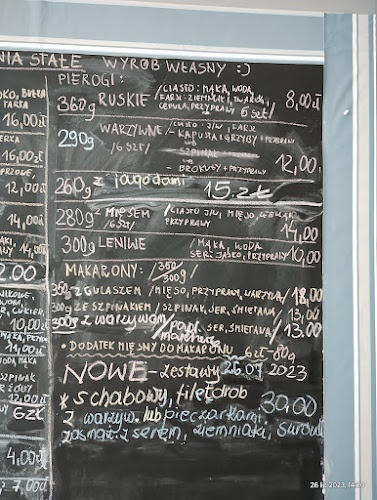 NIA STAŁE WYRÓB WŁASNY :)
PIEROGI:
360g RUSKIE / CIASTO: MĄKA, WODA, FARSZ: ZIEMNIAKI, TWARÓG, CEBULA, PRZYPRAWY 6 szt/ 8,00zł
290g WARZYWNE /6 SZT/ - CIASTO J/W, FARSZ KAPUSTA I GRZYBY + PRZYPRAWY
lub
- SZPINAK
lub
- BROKUŁY + PRZYPRAWY 12,00
260g z jagodami 15.zł
280g - MIĘSEM 6 SZT / CIASTO J/W, MIĘSO, CEBULA, PRZYPRAWY 14,00
300g LENIWE / MĄKA, WODA SER, JAJKO, PRZYPRAWY 10,00
MAKARONY: /350/300g/
350- Z GULASZEM / MIĘSO, PRZYPRAWY, WARZYWA/ 18,00
300g ZE SZPINAKIEM / SZPINAK, SER, ŚMIETANA/ 13,00
300g z warzywami / SER, ŚMIETANA/ 13.00
• DODATEK MIĘSNY DO MAKARONU 6zł-80g
NOWE - zestawy 26.07 2023
* schabowy, filet drob 30,00
z warzyw. lub pieczarkami,
zasmaż. z serem, ziemniaki, surów
OKO, BUŁKA
TARTA
16,00zł
ERKA
16,00zł
PRZOWE,
12,00zł
14,00zł
14,00
2.00
NIKOWE,
CUKIER,
10,00zł
14,00zł
WODA, MĄKA
SZPINAK
12,00zł
6zł
4,00zł
7,00zł